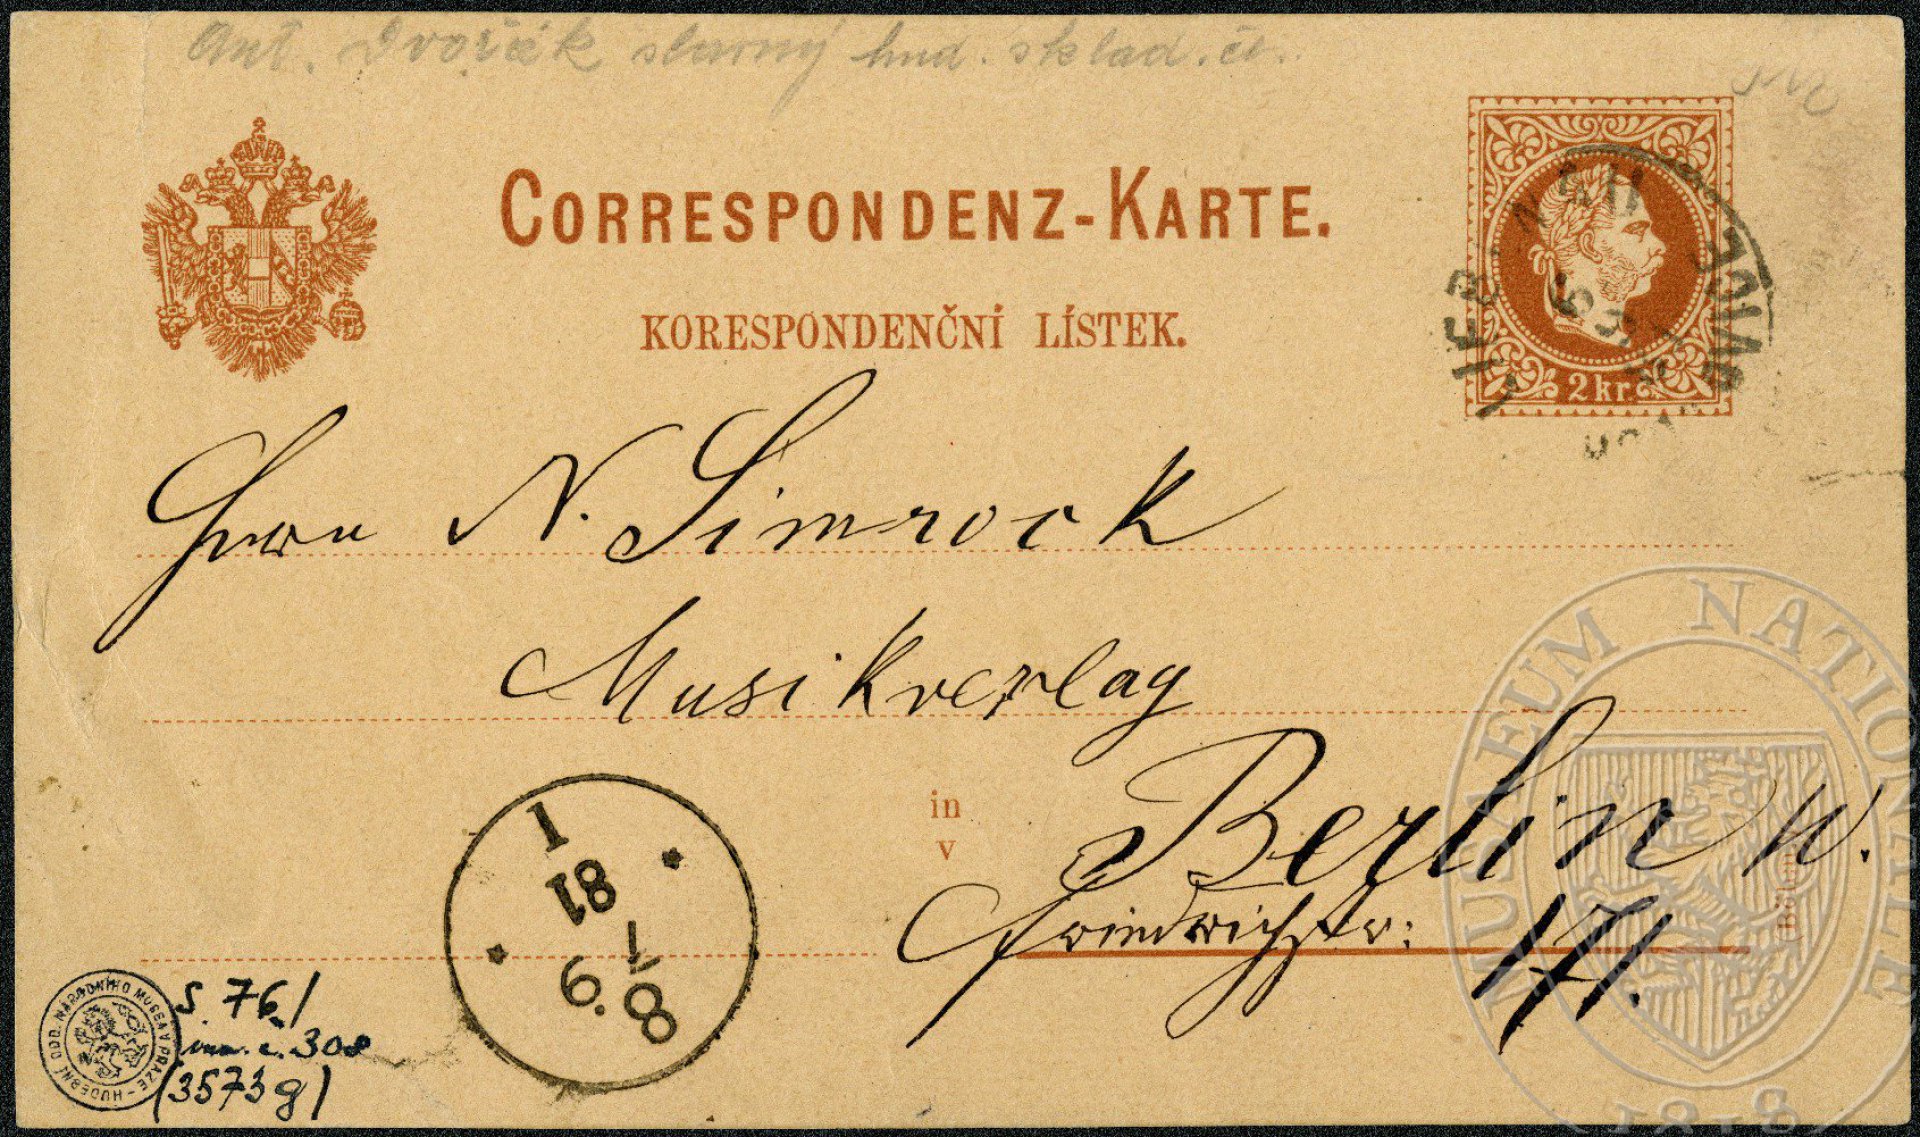 Ant. Dvořák slavný hud. sklad. č.
CORRESPONDENZ-KARTE.
KORESPONDENČNÍ LÍSTEK.
2 kr.
Herrn N. Simrock
Musikverlag
in
v
Berlin W.
Friedrichstr: 171.
(Böhm
1
81
8 9.
S. 76/
inv. č. 308
(3573 g)
HUDEBNÍ ODD. NÁRODNÍHO MUSEA V PRAZE
MUSAEUM NATIONALE
1818